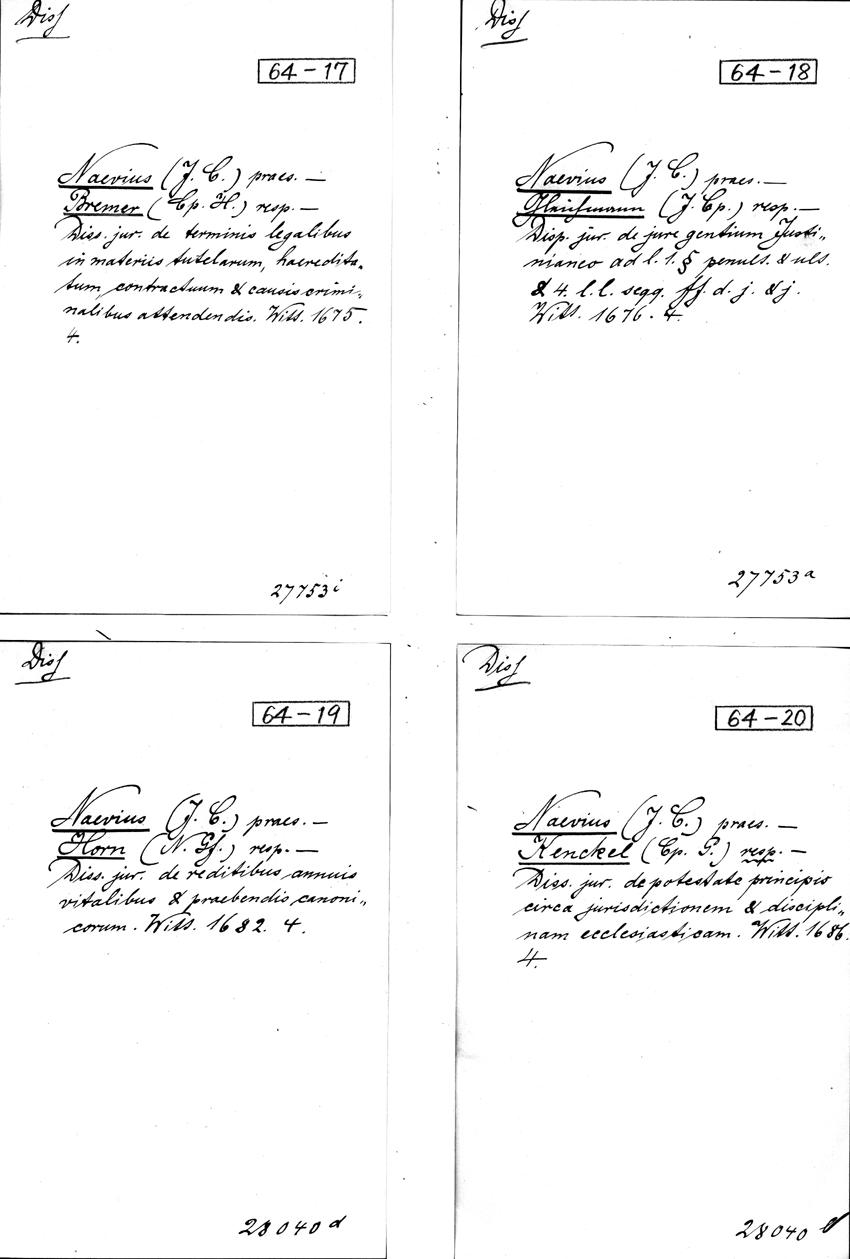 Diss
64-17
Naevius (J. C.) praes. —
Bremer (Cp. H.) resp. —
Diss. jur. de terminis legalibus
in materiis tutelarum, haeredita„
tum, contractuum & causis crimi„
nalibus attendendis. Witt. 1675.
4.
27753 i
Diss
64-18
Naevius (J. C.) praes. —
Gleichmann (J. Cp.) resp. —
Disp. jur. de jure gentium Justi„
nianeo ad l. 1. § penult. & ult.
& 4. l. l. seqq. ff. d. j. & j.
Witt. 1676. 4.
27753 a
Diss
64-19
Naevius (J. C.) praes. —
Horn (N. Gf.) resp. —
Diss. jur. de reditibus annuis
vitalibus & praebendis canoni„
corum. Witt. 1682. 4.
28040 d
Diss
64-20
Naevius (J. C.) praes. —
Kenckel (Cp. G.) resp. —
Diss. jur. de potestate principis
circa jurisdictionem & discipli„
nam ecclesiasticam. Witt. 1686.
4.
28040